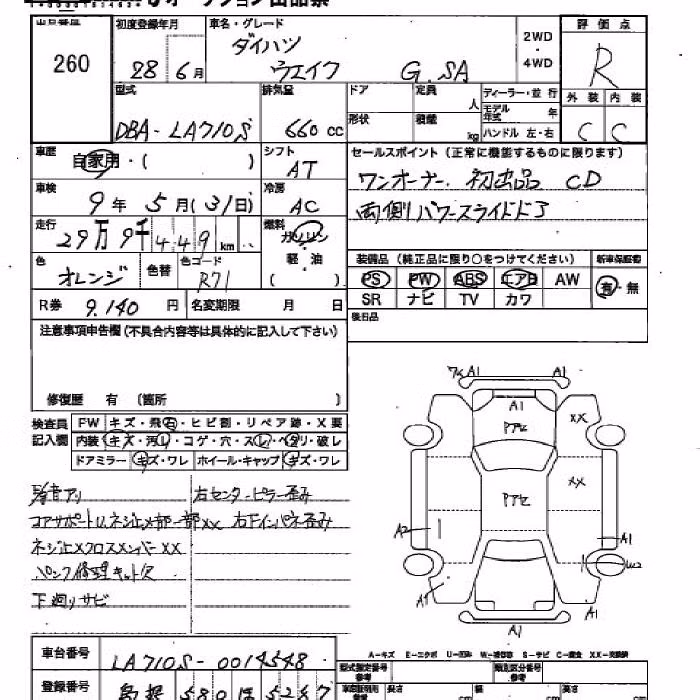 オークション出品票
出品番号 260
初度登録年月 28年 6月
車名・グレード
ダイハツ
ウェイク G.SA
2WD・4WD
評価点 R
外装 内装
C C
型式 DBA-LA710S
排気量 660 cc
ドア 形状
定員 人
積載 kg
ディーラー・並行
モデル年式 年
ハンドル 左・右
車歴 自家用・( )
シフト AT
車検 9年 5月(31日)
冷房 AC
走行 29万9千449km
燃料 ガソリン
軽・油
( )
色 オレンジ
色替
色コード R71
R券 9.140 円
名変期限 月 日
セールスポイント(正常に機能するものに限ります)
ワンオーナー. 初出品 CD
両側パワースライドドア
装備品(純正品に限り○をつけてください)
新車保証書
PS PW ABS エアB AW
有・無
SR ナビ TV カワ
後日品
注意事項申告欄(不具合内容等は具体的に記入して下さい)
修復歴 有 〔箇所 〕
検査員記入欄
FW キズ・飛石・ヒビ割・リペア跡・X要
内装 キズ・汚レ・コゲ・穴・スレ・ヘタリ・破レ
ドアミラー キズ・ワレ ホイール・キャップ キズ・ワレ
異音アリ
右センターピラー歪み
コアサポートL ネジ止メ部一部XX
右下インパネ歪み
ネジ止メクロスメンバーXX
パンク修理キット欠
下廻りサビ
A1 A1
A1
アセ
XX
アセ
XX
A2
A1
W2
A1
A1
A1
A-キズ E-エクボ U-凹み W-補修跡 S-サビ C-腐食 XX-交換済
車台番号 LA710S-0014548
登録番号 島根 580 ほ 5257
型式指定番号 参考
類別区分番号 参考
長さ cm
幅 cm
高さ cm